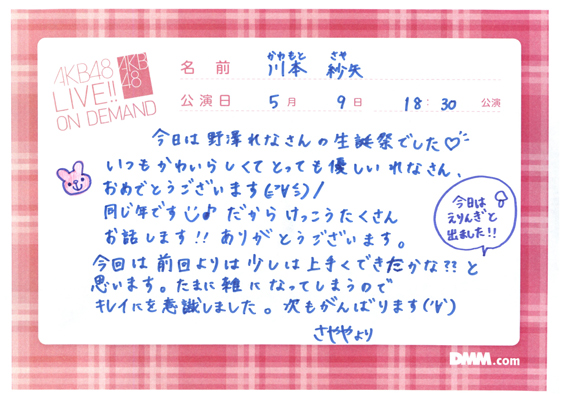 AKB48
LIVE!!
ON DEMAND
AKB
48
かわもと さや
名前 川本 紗矢
公演日 5月 9日 18:30 公演
今日は 野澤れなさんの生誕祭でした♡
いつもかわいらしくてとっても優しいれなさん、
おめでとうございます(≧∀≦)/
同じ年です♪ だから けっこうたくさん
お話します!! ありがとうございます。
今回は 前回よりは少しは上手くできたかな?? と
思います。たまに雑になってしまうので
キレイにを意識しました。次もがんばります('∀')
さややより
今日は
えりんぎと
出ました!!
DMM.com